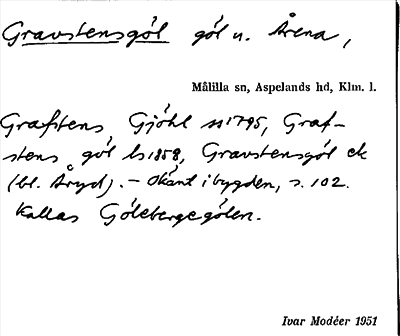 Gravstensgöl göl u. Årena,
Målilla sn, Aspelands hd, Klm. l.
Grafstens Gjöhl ss1795, Graf-
stens göl ls1858, Gravstensgöl ek
(bl. Åryd). – Okänt i bygden, s. 102.
Kallas Gölebergegölen.
Ivar Modéer 1951